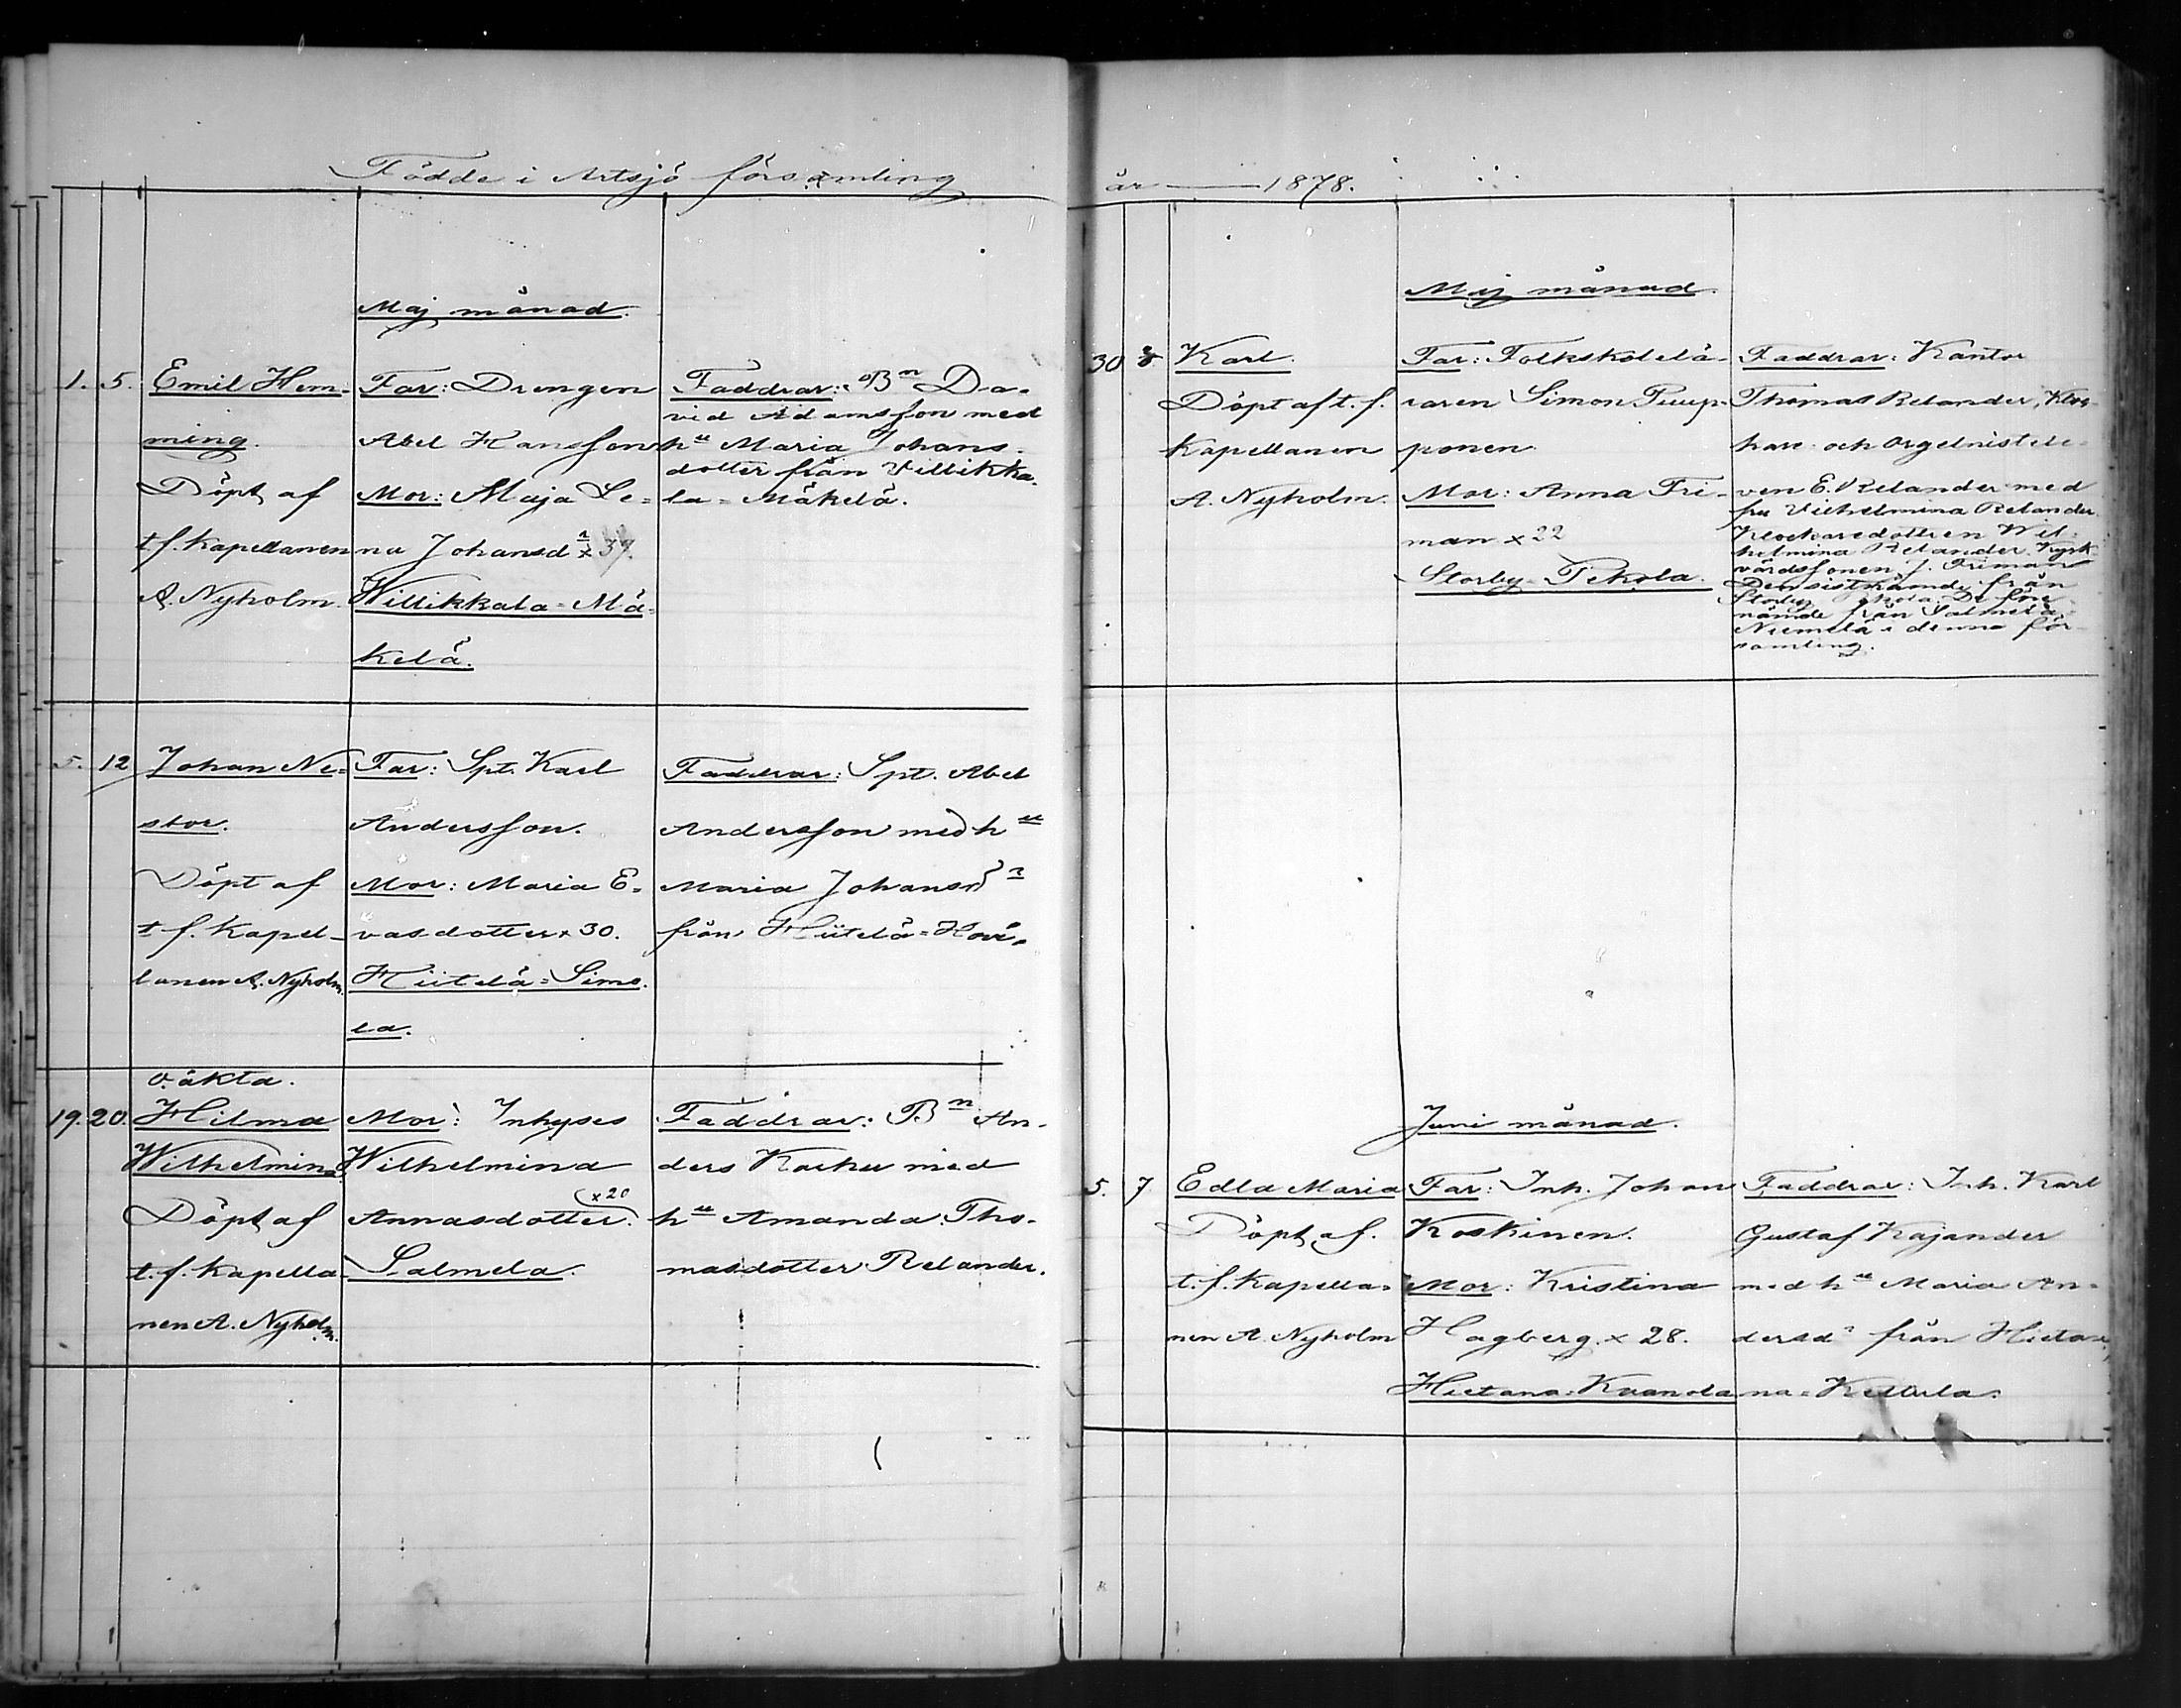 Födde i Artsjö församling
år 1878.
Maj månad.
1. 5. Emil Hem-
ming.
Döpt af
t. f. Kapellanen
A. Nyholm.
Far: Drengen
Abel Hansson
Mor: Maja Le-
na Johansdr x 37.
Willikkala-Mä-
kelä.
Faddrar: Bn Da-
vid Adamsson med
hu Maria Johans-
dotter från Villikka-
la-Mäkelä.
5. 12 Johan Ne-
stor.
Döpt af
t. f. Kapel-
lanen A. Nyholm.
Far: Spt. Karl
Andersson.
Mor: Maria E-
vasdotter x 30.
Hiitelä-Simo-
la.
Faddrar: Spt. Abel
Andersson med hu
Maria Johansdr
från Hiitelä-Hovi.
19. 20. o.äkta.
Hilma
Wilhelmina
Döpt af
t. f. Kapella-
nen A. Nyholm.
Mor: Inhyses
Wilhelmina
x 20
Annasdotter.
Salmela.
Faddrar: Bn An-
ders med
hu Amanda Tho-
masdotter Relander.
Maj månad.
30 Karl.
Döpt af t. f.
Kapellanen
A. Nyholm.
Far: Folkskolelä-
raren Simon Puup-
ponen.
Mor: Anna Fri-
man x 22
Storby-Pekola.
Faddrar: Kantor
Thomas Relander, Kloc-
kare och orgelnistele-
ven E. Relander med
fru Vilhelmina Relander
Klockaredottren Wil-
helmina Relander Kyrk-
värdssonen J. Friman
Den sistnämnde från
Storby De före-
nämnde från Salmela-
Niemelä i denna för-
samling.
Juni månad.
5. 7 Edla Maria
Döpt af.
t. f. Kapella-
nen A. Nyholm
Far: Inh. Johan
Koskinen.
Mor: Kristina
Hagberg. x 28.
Hietana-Kvanola
Faddrar: Inh. Karl
Gustaf Kajander
med hu Maria An-
dersdr från Hieta-
na-Kellula.